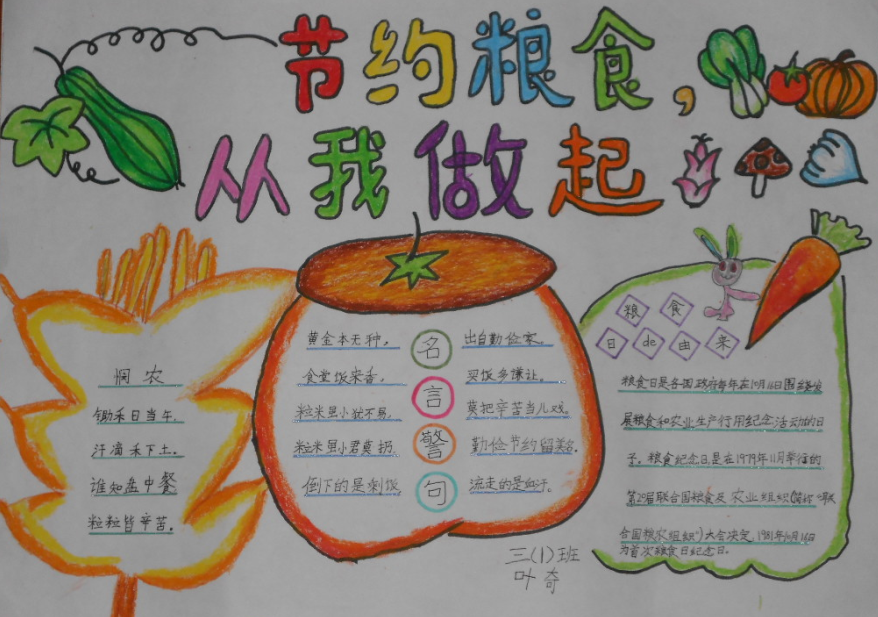 节约粮食，
从我做起
悯农
锄禾日当午，
汗滴禾下土。
谁知盘中餐
粒粒皆辛苦。
名言警句
黄金本无种， 出自勤俭家。
食堂饭来香， 买饭多谦让。
粒米虽小犹不易， 莫把辛苦当儿戏。
粒米虽小君莫扔， 勤俭节约留美名。
倒下的是剩饭 流走的是血汗。
粮食
日de由来
粮食日是各国政府每年在10月16日围绕发
展粮食和农业生产行用纪念活动的日
子。粮食纪念日,是在1979年11月举行的
第20届联合国粮食及农业组织(简称“联
合国粮农组织”)大会决定,1981年10月16日
为首次粮食日纪念日。
三(1)班
叶奇